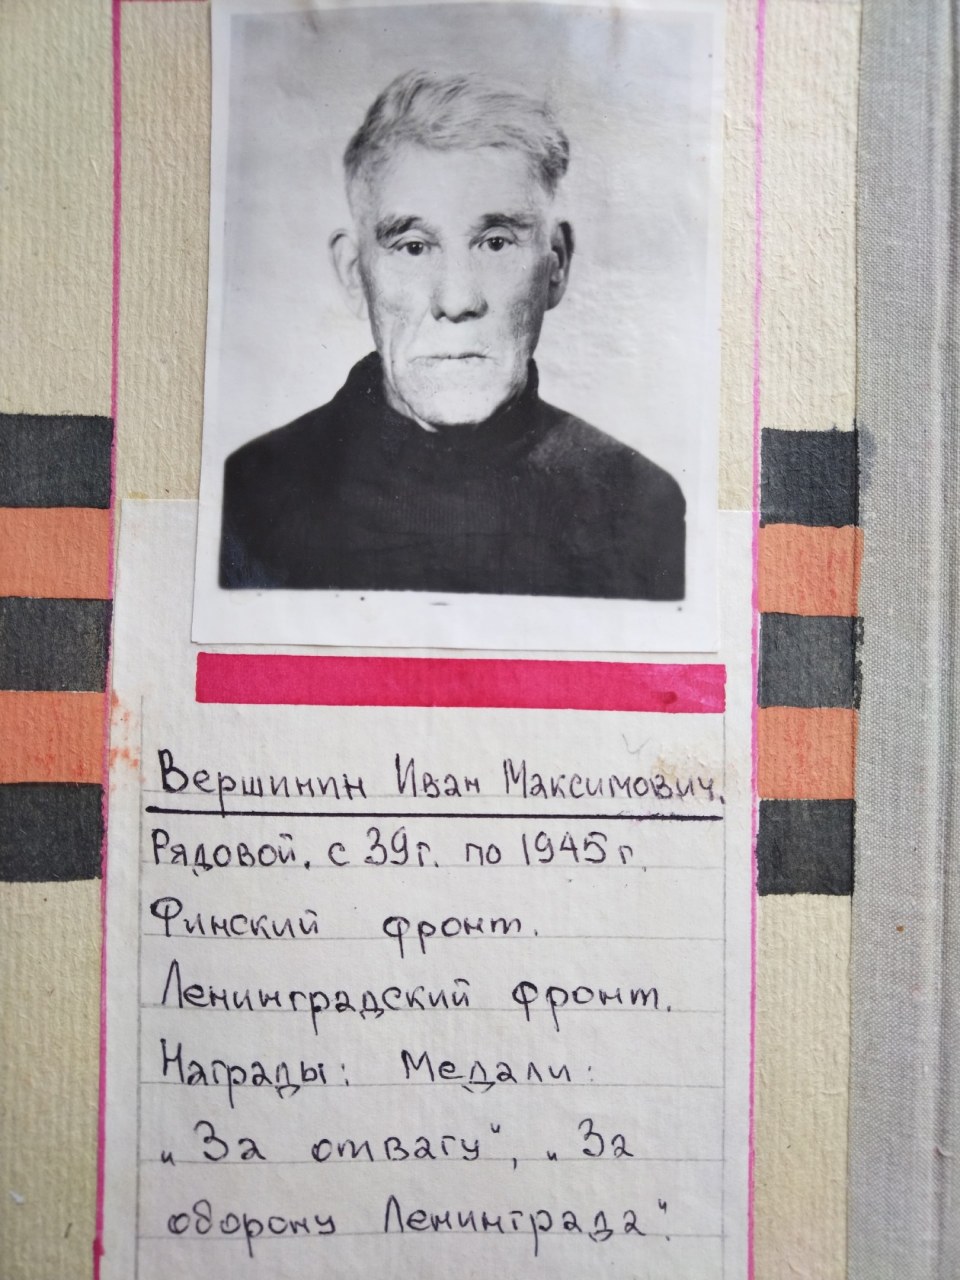 Вершинин Иван Максимович.
Рядовой. с 39г. по 1945 г.
Финский фронт.
Ленинградский фронт.
Награды: Медали:
„За отвагу", „За
оборону Ленинграда".